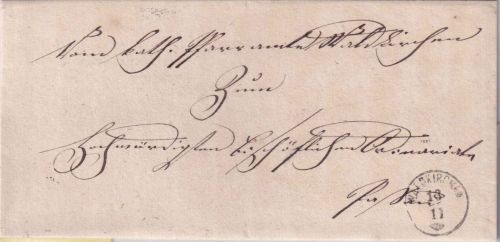 Vom kath. Pfarramte Waldkirchen
Zum
Hochwürdigsten bischöflichen Ordinariate
Passau
WALDKIRCHEN
11